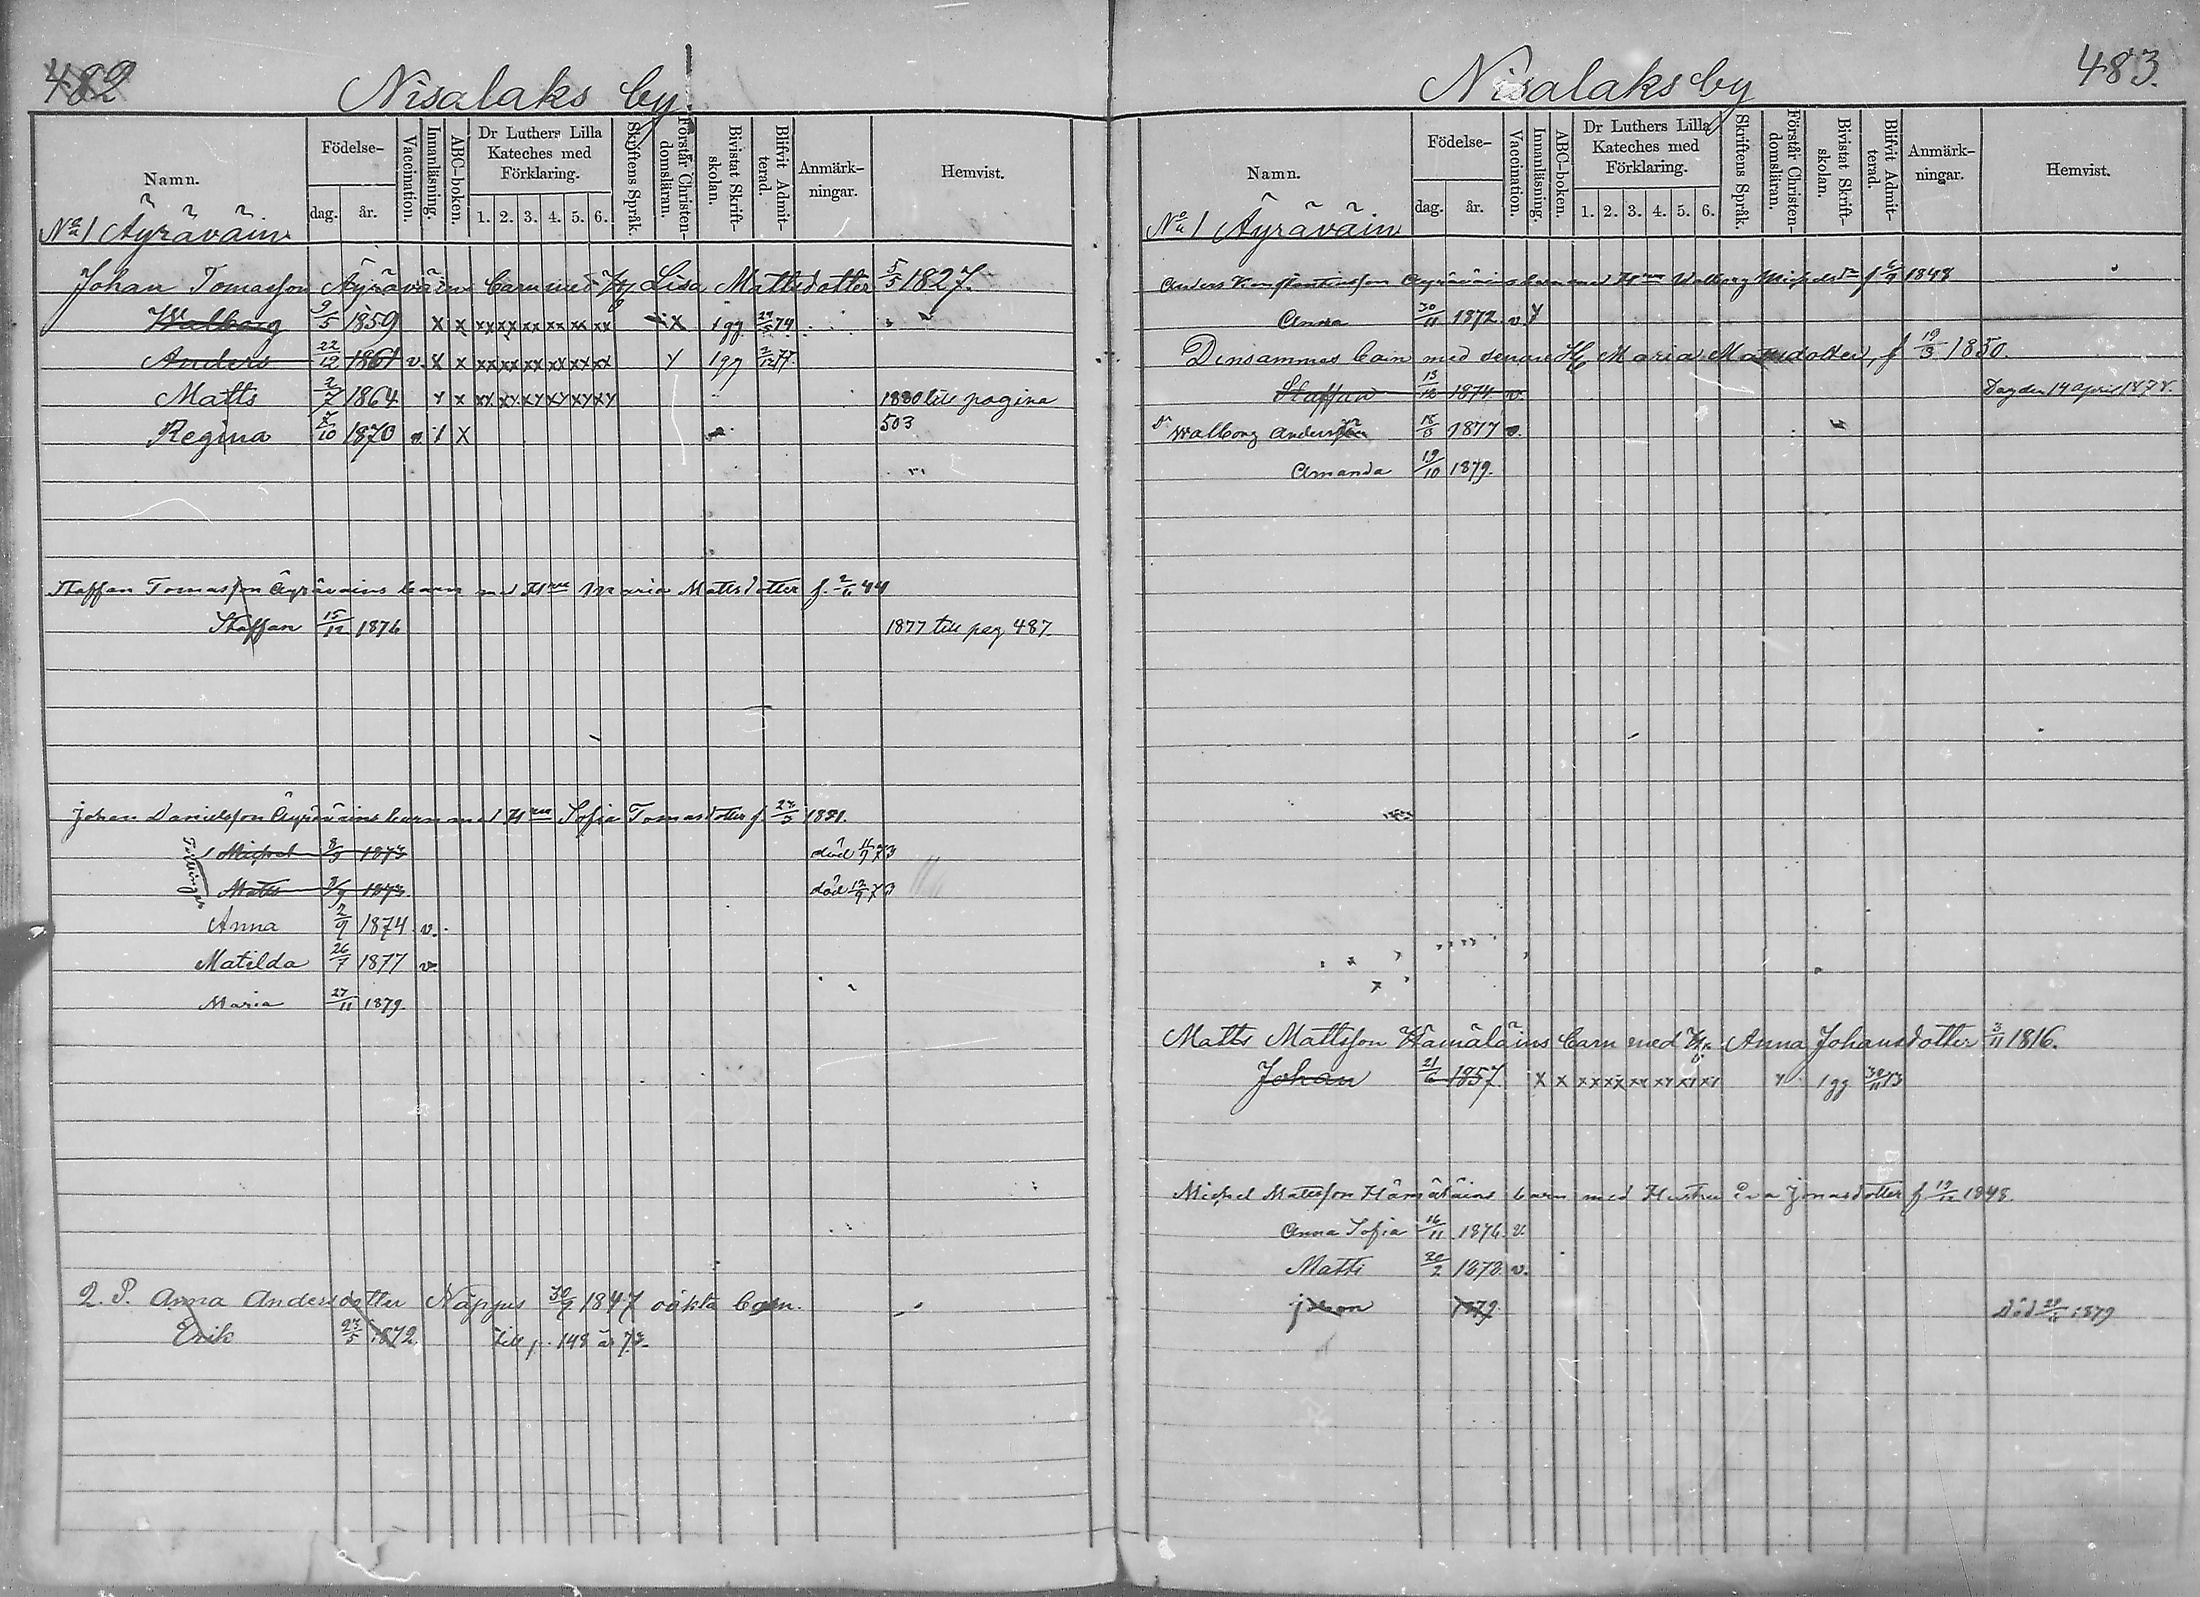 482
Nisalaks by
Namn.
Födelse-
dag.
år.
Vaccination.
Innanläsning.
ABC-boken.
Dr Luthers Lilla
Kateches med
Förklaring.
1. 2. 3. 4. 5. 6.
Skriftens Språk.
Förstår Christen-
domsläran.
Bivistat Skrift-
skolan.
Blifvit Admit-
terad.
Anmärk-
ningar.
Hemvist.
No 1 Äyräväin
Johan Tomasson Äyräväins barn med H. Lisa Mattsdotter 5/5 1827.
Walborg 9/5 1859 X X xx xx xx xx xx xx X 1 gg 74
Anders 22/12 1861 v. X X xx xx xx xx xx xx Y 1 gg 77
Matts 2/7 1864 Y X XX XY XY XY XY XY 1880 till pagina
Regina 10 1870 v 1 X 503
Staffan Tomasson Äyräväins barn med Hru Maria Mattsdotter f. 2/6 44
Staffan 15/12 1876 1877 till pag. 487.
Johan Danielsson Äyräväins barn med Hru Sofia Tomasdotter f 1851.
Tvillingar
Michel 8/9 1873 död 11/9 73
Matts 8/9 1873 död 12/9 73
Anna 2/9 1874 v.
Matilda 26/7 1877 v.
Maria 27/11 1879.
Q. P. Anna Andersdotter Näpjus 30/9 1847 oäkta barn.
Erik 27/5 1872 till p. 148 år 73.
483.
Nisalaks by
Namn.
Födelse-
dag.
år.
Vaccination.
Innanläsning.
ABC-boken.
Dr Luthers Lilla
Kateches med
Förklaring.
1. 2. 3. 4. 5. 6.
Skriftens Språk.
Förstår Christen-
domsläran.
Bivistat Skrift-
skolan.
Blifvit Admit-
terad.
Anmärk-
ningar.
Hemvist.
No 1 Äyräväin
Anders Konstantinsson Äyräväins barn med Hru Walborg Michelsdr f 6/9 1848
Anna 30/11 1872 v Y
Densammes barn med senare H. Maria Mattsdotter, f 19/3 1850.
Staffan 13/12 1874 v. Död den 14 April 1878.
Dr Walborg Anders 1877 v.
Amanda 19/10 1879.
Matts Mattsson Hämäläins barn med H. Anna Johansdotter 3/11 1816.
Johan 21/6 1857. X X xx xx xx xx xx xx Y 1 gg 30/11 73
Michel Matsson Hämäläins barn med Hustru Eva Jonasdotter f 19/12 1848.
Anna Sofia 16/11 1876. v.
Matts 20/2 1878. v.
1879 Död 29/6 1879